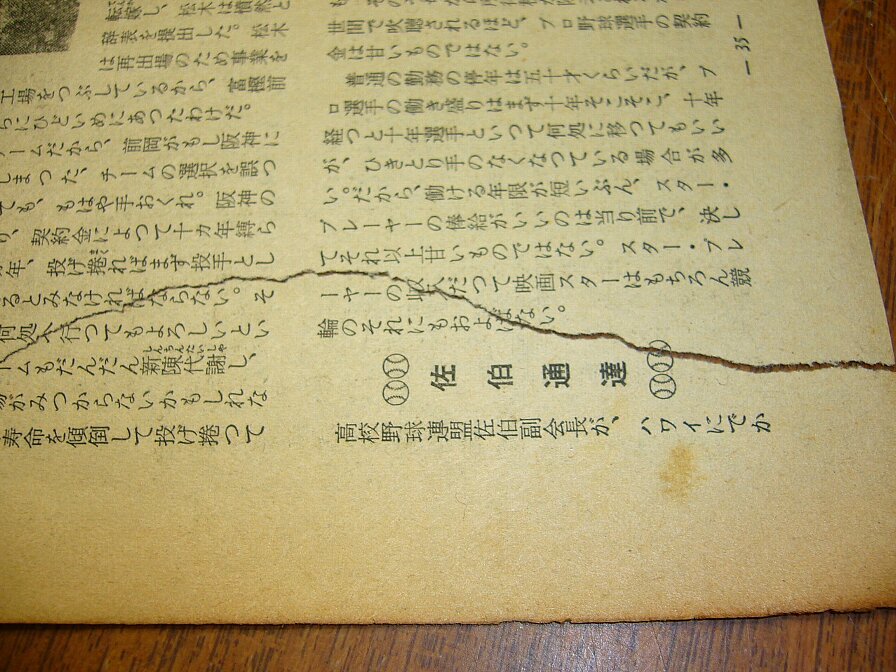 転嫁し、松木は憤然と
辞表を提出した。松木
は再出場のため事業を
工場をつぶしているから、富樫前
らにひどいめにあつたわけだ。
ームだから、前岡がもし阪神に
しまつた、チームの選択を誤つ
ても、もはや手おくれ。阪神の
り、契約金によつて十カ年縛ら
年、投げ捲ればまず投手とし
るとみなければならない。そ
何処へ行つてもよろしいとい
ームもだんだん新陳代謝し、
場がみつからないかもしれな
寿命を傾倒して投げ捲つて
世間で吹聴されるほど、プロ野球選手の契約
金は甘いものではない。
普通の勤務の停年は五十才くらいだが、プ
ロ選手の働き盛りはまず十年そこそこ、十年
経つと十年選手といつて何処に移つてもいい
が、ひきとり手のなくなつている場合が多
い。だから、働ける年限が短いぶん、スター・
プレーヤーの俸給がいいのは当り前で、決し
てそれ以上甘いものではない。スター・プレ
ーヤーの収入だつて映画スターはもちろん競
輪のそれにもおよばない。
佐伯通達
高校野球連盟佐伯副会長が、ハワイにでか
— 35 —